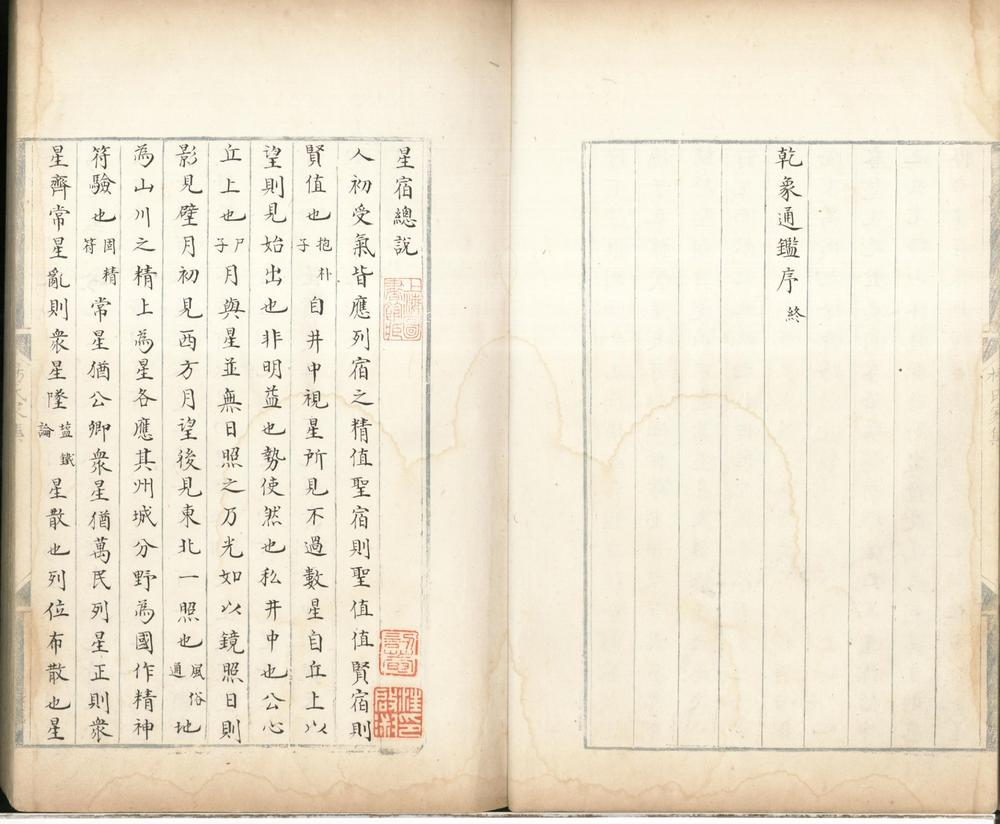 乾象通鑑序 終
星宿總說
人初受氣皆應列宿之精值聖宿則聖值值賢宿則
賢值也 抱朴子 自井中視星所見不過數星自丘上以
望則見始出也非明益也勢使然也私井中也公心
丘上也 尸子 月與星並無日照之乃光如以鏡照日則
影見壁月初見西方月望後見東北一照也 風俗通 地
為山川之精上為星各應其州城分野為國作精神
符驗也 同精符 常星猶公卿衆星猶萬民列星正則衆
星齊常星亂則衆星墜 塩鐵論 星散也列位布散也星